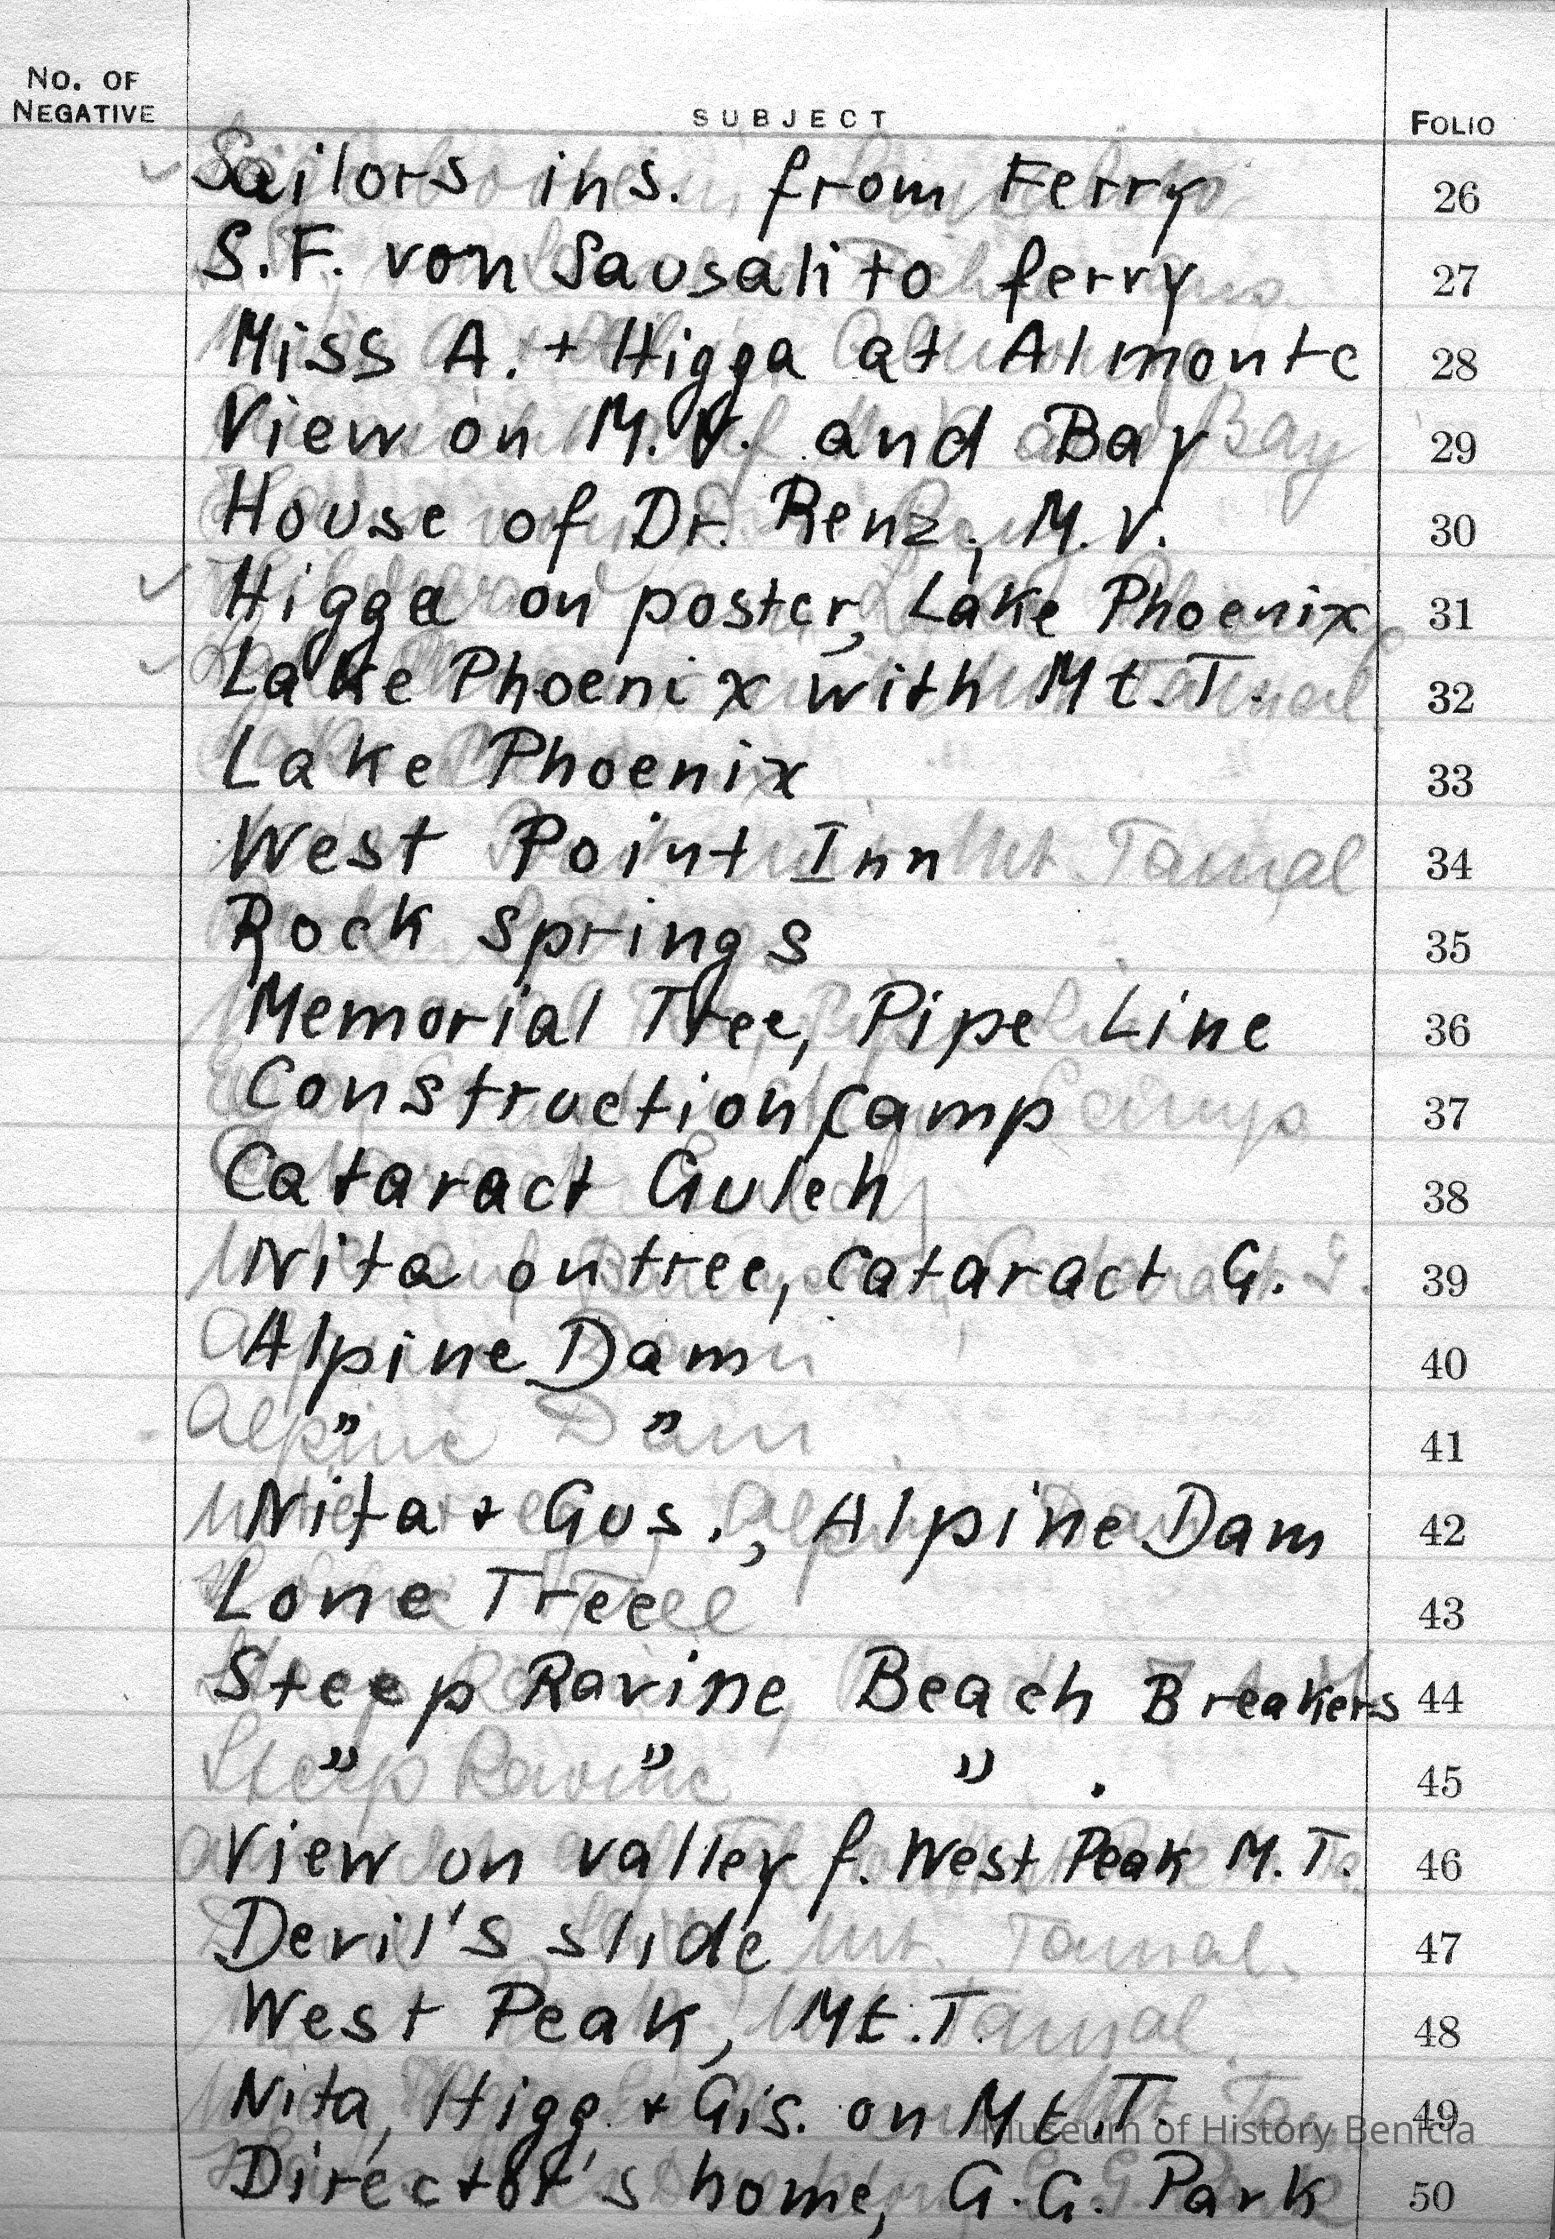 NO. OF NEGATIVE SUBJECT FOLIO
Sailors ins. from Ferry 26
S.F. von Sausalito ferry 27
Miss A. + Higga at Almonte 28
View on M.V. and Bay 29
House of Dr. Renz, M.V. 30
Higga on poster, Lake Phoenix 31
Lake Phoenix with Mt. T. 32
Lake Phoenix 33
West Point Inn 34
Rock Springs 35
Memorial Tree, Pipe Line 36
Construction Camp 37
Cataract Gulch 38
Nita on tree, Cataract G. 39
Alpine Dam 40
" " 41
Nita + Gus., Alpine Dam 42
Lone Tree 43
Steep Ravine Beach Breakers 44
" " " . 45
View on valley f. West Peak M.T. 46
Devil's slide 47
West Peak, Mt. T. 48
Nita, Higg. + Gis. on Mt. T. 49
Director's home, G.G. Park 50
Museum of History Benicia